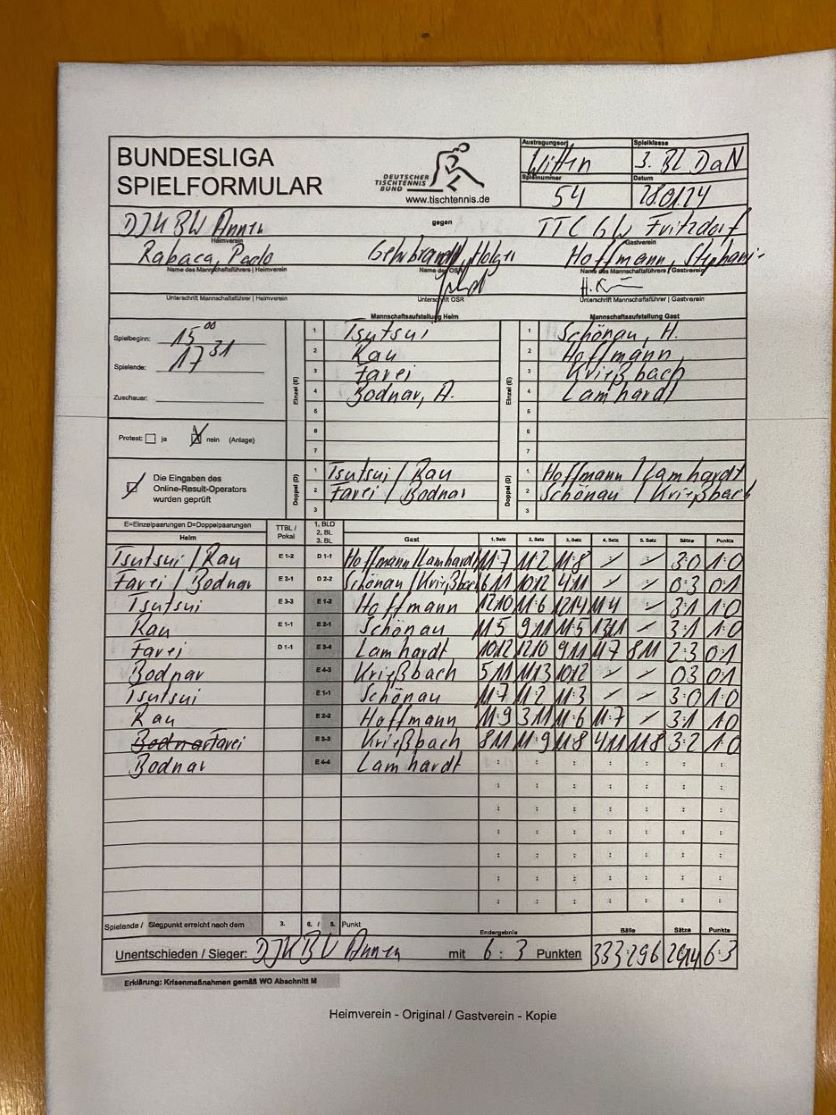 BUNDESLIGA
SPIELFORMULAR
DEUTSCHER
TISCHTENNIS
BUND
www.tischtennis.de
Austragungsort Spielklasse
Witten 3. BL DaN
Spielnummer Datum
54
DJK BW Annen gegen TTC GW Fritzdorf
Heimverein Gastverein
Rabaca, Paolo Gehrbrandt, Holger Hoffmann, Stephani
Name des Mannschaftsführers / Heimverein Name des OSR Name des Mannschaftsführers / Gastverein
Unterschrift Mannschaftsführer / Heimverein Unterschrift OSR Unterschrift Mannschaftsführer / Gastverein
Mannschaftsaufstellung Heim Mannschaftsaufstellung Gast
Spielbeginn: 15 00
Spielende: 17 31
Zuschauer:
Einzel (E)
1 Tsutsui
2 Rau
3 Farei
4 Bodnar, A.
5
6
7
Einzel (E)
1 Schönau, H.
2 Hoffmann,
3 Krießbach
4 Lamhardt
5
6
7
Protest: ja nein (Anlage)
Die Eingaben des
Online-Result-Operators
wurden geprüft
Doppel (D)
1 Tsutsui / Rau
2 Farei / Bodnar
3
Doppel (D)
1 Hoffmann / Lamhardt
2 Schönau / Krießbach
3
E=Einzelpaarungen D=Doppelpaarungen TTBL / Pokal 1. BLD 2. BL 3. BL
Heim Gast 1. Satz 2. Satz 3. Satz 4. Satz 5. Satz Sätze Punkte
Tsutsui / Rau E 1-2 D 1-1 Hoffmann/Lamhardt 11:7 11:2 11:8 - - 3:0 1:0
Farei / Bodnar E 2-1 D 2-2 Schönau / Krießbach 6:11 10:12 4:11 - - 0:3 0:1
Tsutsui E 3-3 E 1-2 Hoffmann 12:10 11:6 12:14 11:4 - 3:1 1:0
Rau E 1-1 E 2-1 Schönau 11:5 9:11 11:5 13:11 - 3:1 1:0
Farei D 1-1 E 3-4 Lamhardt 10:12 12:10 9:11 11:7 8:11 2:3 0:1
Bodnar E 4-3 Krießbach 5:11 11:13 10:12 - - 0:3 0:1
Tsutsui E 1-1 Schönau 11:7 11:2 11:3 - - 3:0 1:0
Rau E 2-2 Hoffmann 11:9 3:11 11:6 11:7 - 3:1 1:0
Bodnar Farei E 3-3 Krießbach 8:11 11:9 11:8 4:11 11:8 3:2 1:0
Bodnar E 4-4 Lamhardt : : : : : : :
Spielende / Siegpunkt erreicht nach dem 3. 6. / 5. Punkt Endergebnis Bälle Sätze Punkte
Unentschieden / Sieger: DJK BW Annen mit 6 : 3 Punkten 333:296 20:14 6:3
Erklärung: Krisenmaßnahmen gemäß WO Abschnitt M
Heimverein - Original / Gastverein - Kopie